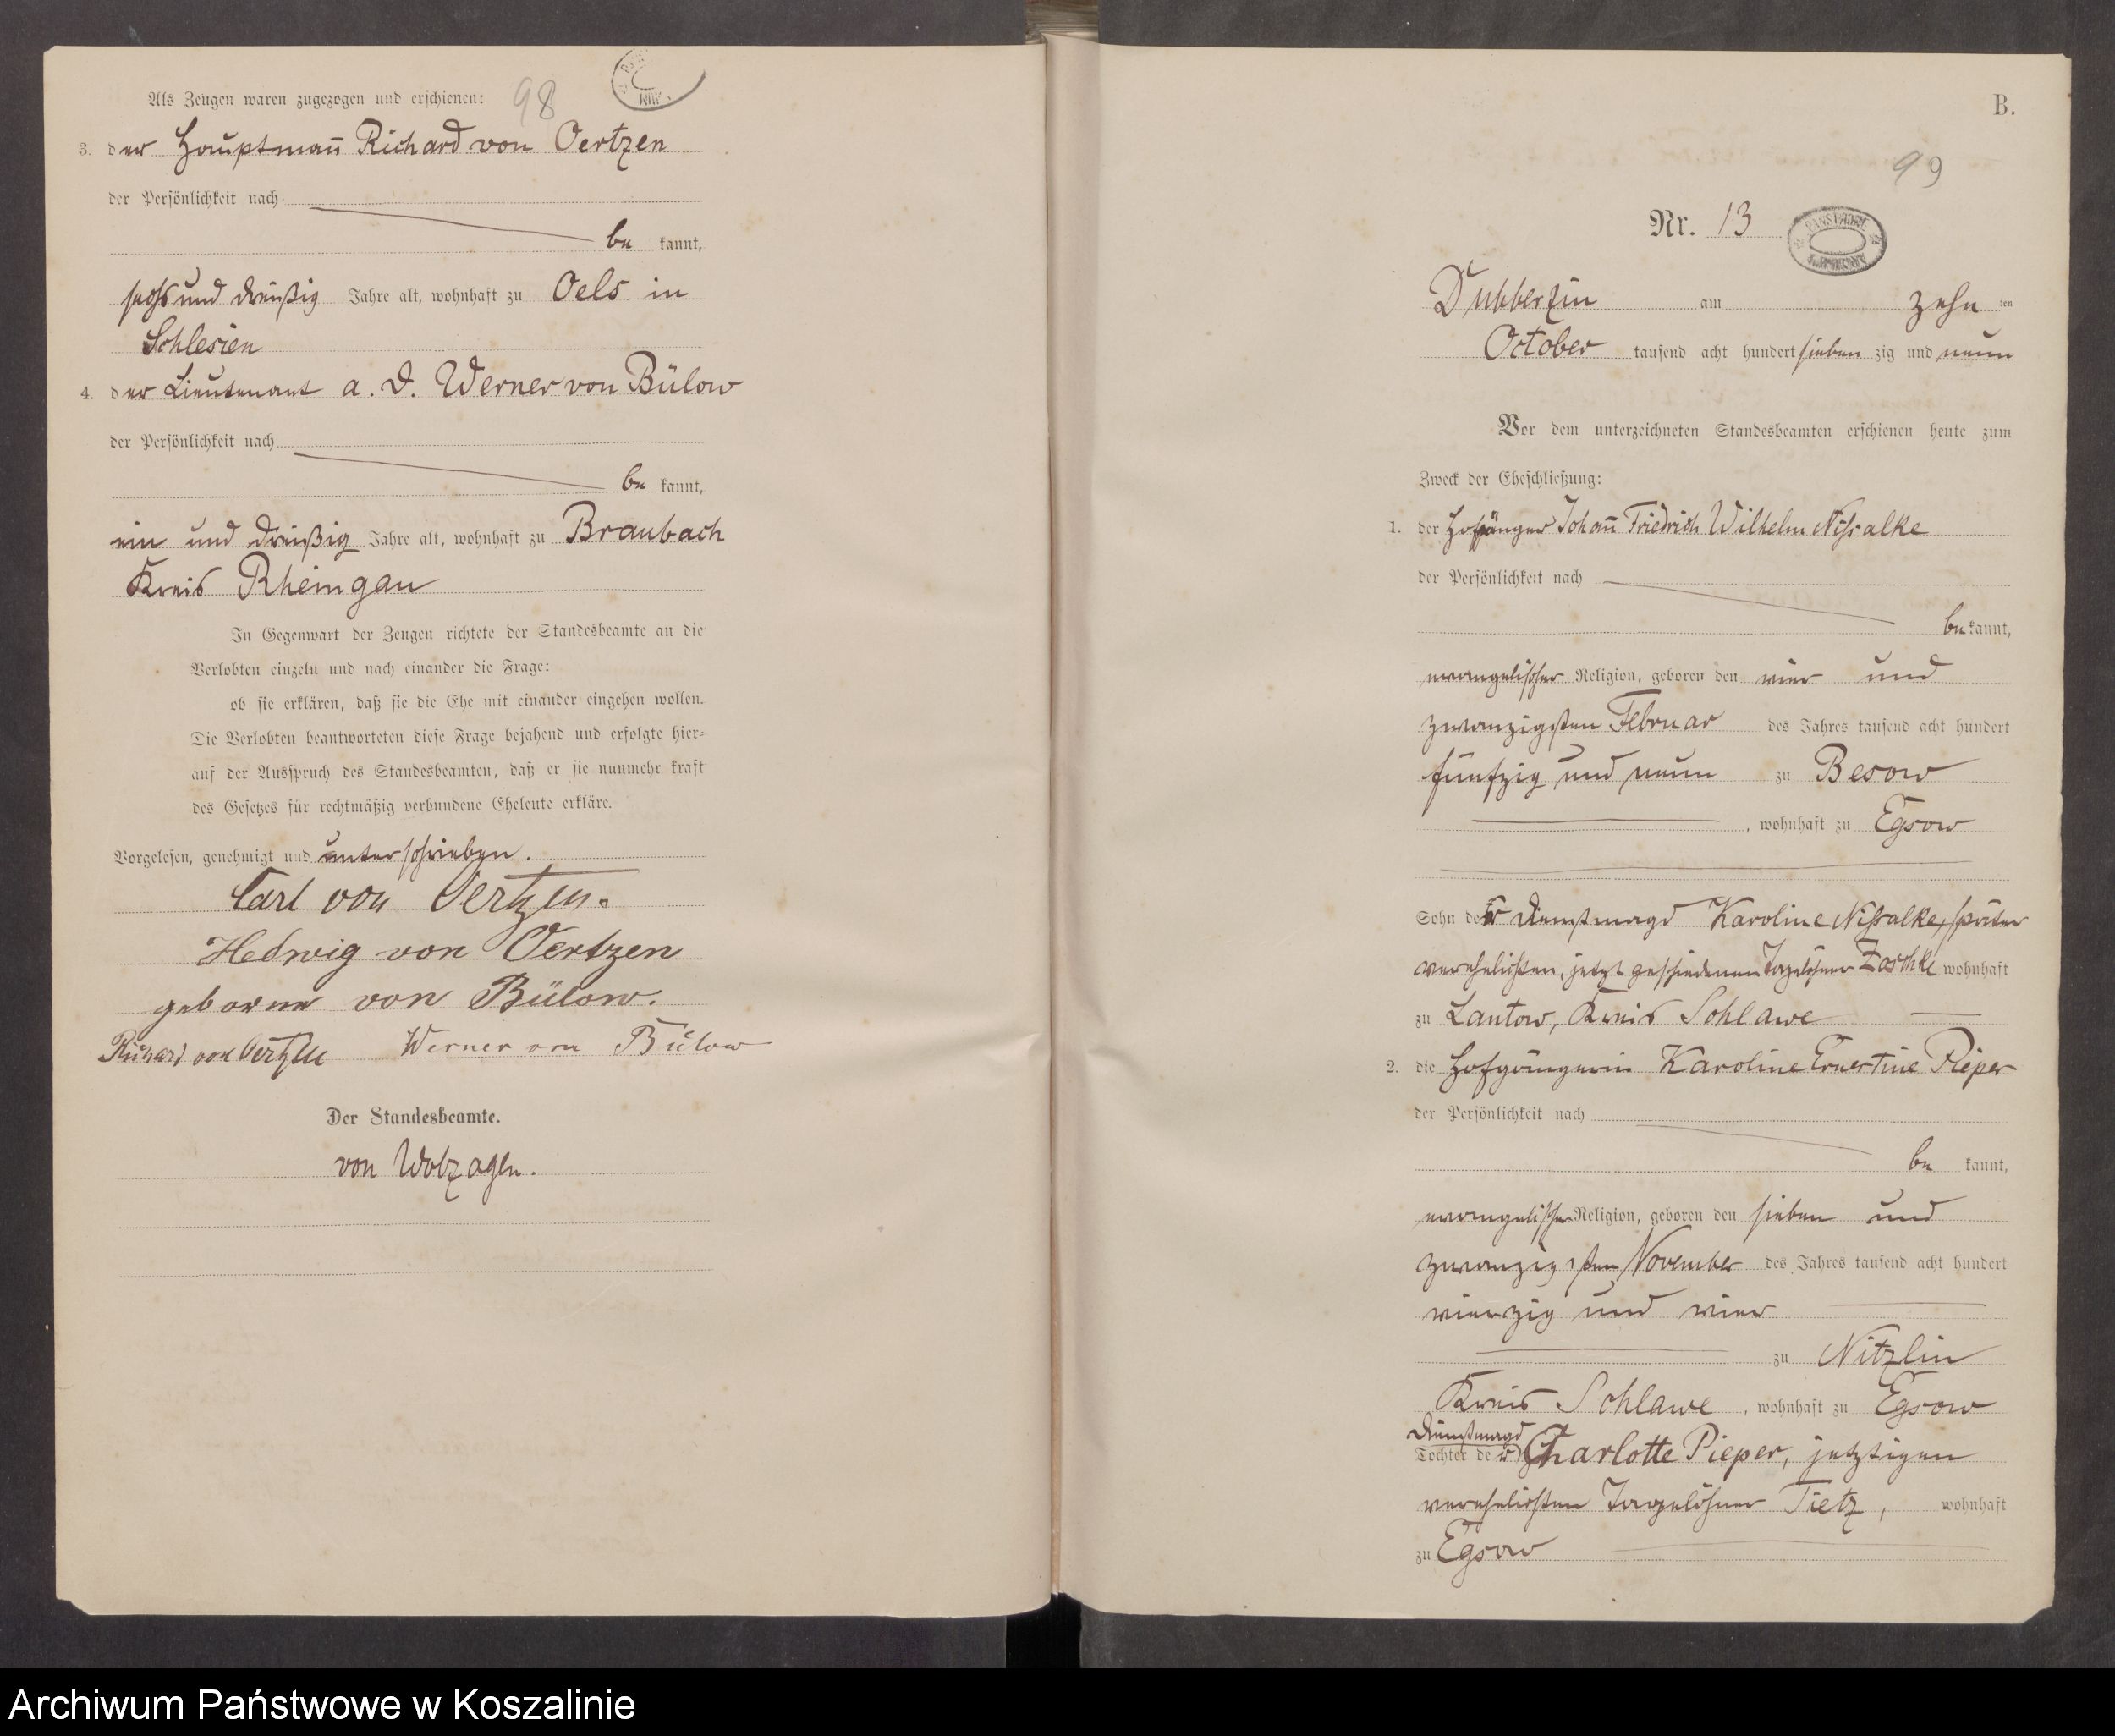 Als Zeugen waren zugezogen und erschienen:
98
3. der Hauptmañ Richard von Oertzen
der Persönlichkeit nach
be kannt,
sechs und dreißig Jahre alt, wohnhaft zu Oels in
Schlesien
4. der Lieutenant a. D. Werner von Bülow
der Persönlichkeit nach
be kannt,
ein und dreißig Jahre alt, wohnhaft zu Braubach
Kreis Rheingau
In Gegenwart der Zeugen richtete der Standesbeamte an die
Verlobten einzeln und nach einander die Frage:
ob sie erklären, daß sie die Ehe mit einander eingehen wollen.
Die Verlobten beantworteten diese Frage bejahend und erfolgte hier=
auf der Ausspruch des Standesbeamten, daß er sie nunmehr kraft
des Gesetzes für rechtmäßig verbundene Eheleute erkläre.
Vorgelesen, genehmigt und unterschrieben.
Carl von Oertzen.
Hedwig von Oertzen
geborne von Bülow.
Richard von Oertzen Werner von Bülow
Der Standesbeamte.
von
B.
99
Nr. 13
Dubberzin am zehn ten
October tausend acht hundert sieben zig und neun
Vor dem unterzeichneten Standesbeamten erschienen heute zum
Zweck der Eheschließung:
1. der Hofgänger Johañ Friedrich Wilhelm Nissalke
der Persönlichkeit nach
be kannt,
evangelischer Religion, geboren den vier und
zwanzigsten Februar des Jahres tausend acht hundert
fünfzig und neun zu Besow
, wohnhaft zu Egsow
Sohn der Dienstmagd Karoline Nissalke, später
verehelichten, jetzt geschiedenen Tagelöhner Zaschke wohnhaft
zu Lantow, Kreis Schlawe
2. die Hofgängerin Karoline Ernestine Pieper
der Persönlichkeit nach
be kannt,
evangelischer Religion, geboren den sieben und
zwanzigsten November des Jahres tausend acht hundert
vierzig und vier
zu Nitzlin
Kreis Schlawe, wohnhaft zu Egsow
Dienstmagd
Tochter der Charlotte Pieper, jetzigen
verehelichten Tagelöhner Tietz, wohnhaft
zu Egsow
Archiwum Państwowe w Koszalinie